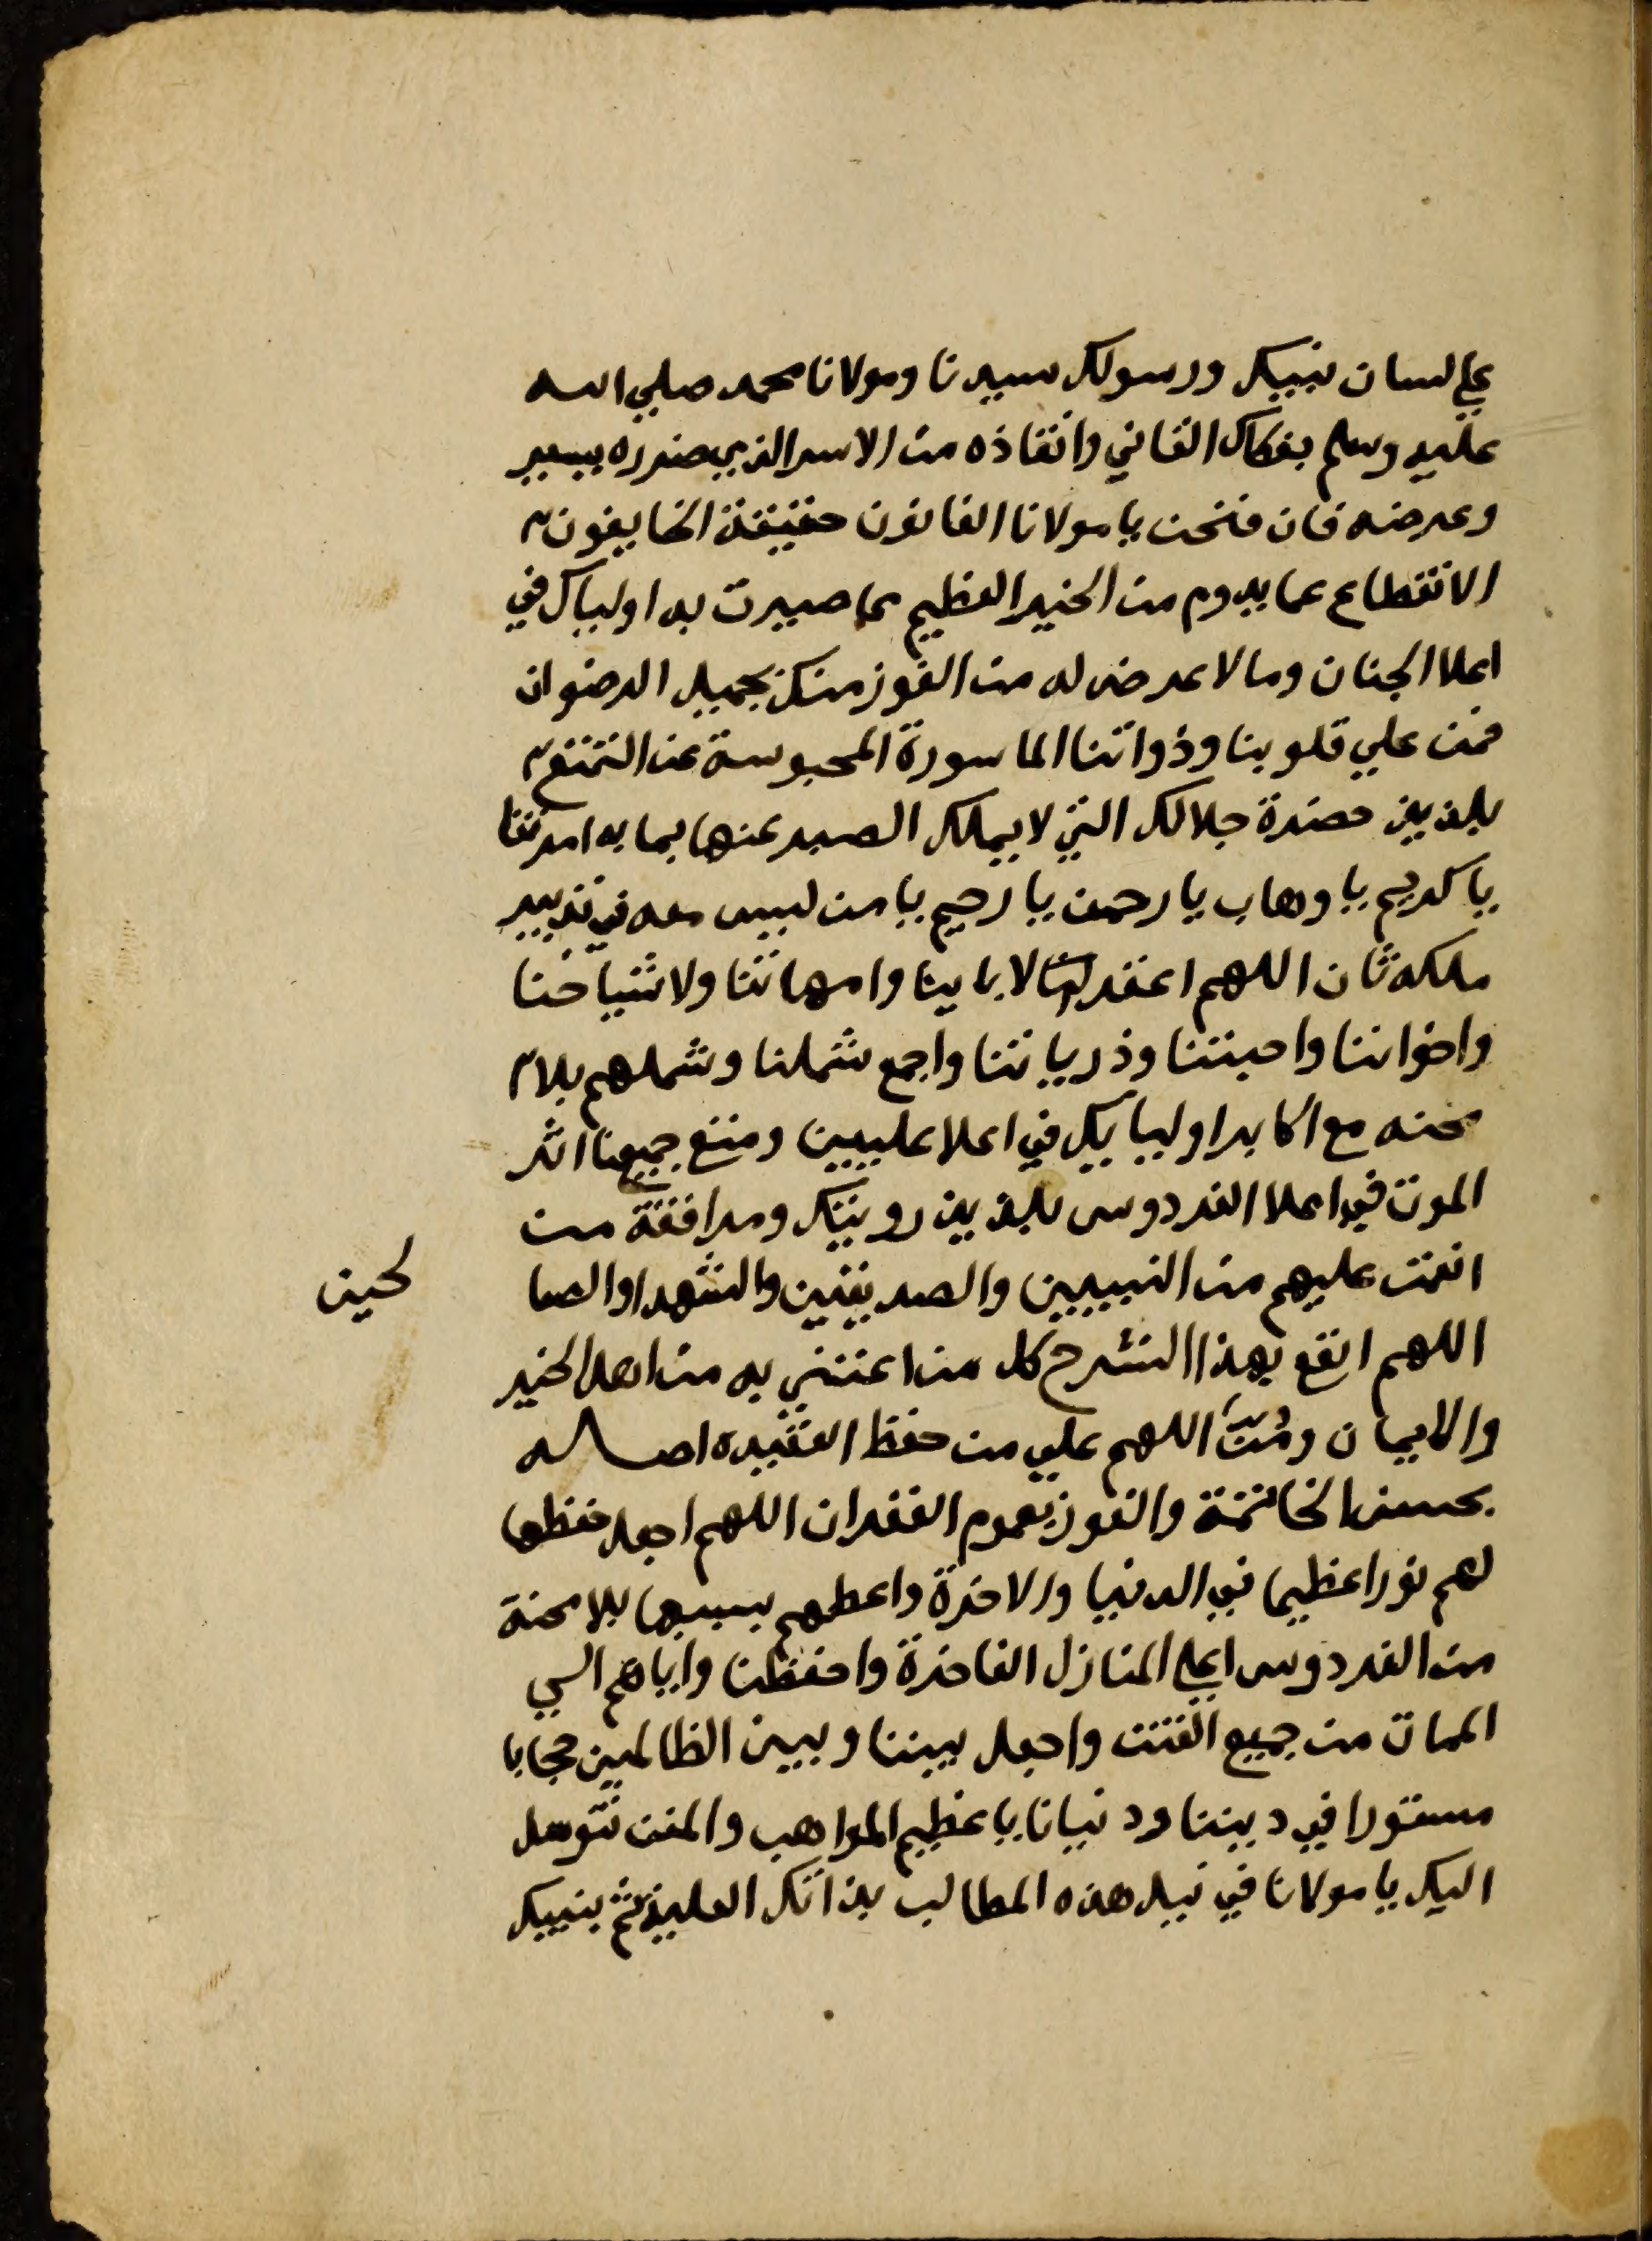 علي لسان نبيك ورسولك سيدنا ومولانا محمد صلي الله
عليه وسلم بفكاك الفاني وانقاذه من الاسر الذي ضرره يسير
وعرضه فان فنحن يا مولانا العانون حقيقة الخايفون
الانقطاع عما يدوم من الخير العظيم مما صيرت به اولياك في
اعلا الجنان وما لا عرض له من الفوز منك بجميل الرضوان
فمن علي قلوبنا وذواتنا الماسورة المحبوسة عن التمتع
بلذيذ حضرة جلالك التي لا يملك الصبر عنها بما به امرتنا
يا كريم يا وهاب يا رحمن يا رحيم يا من ليس معه في تدبير
ملكه ثان اللهم اغفر لنا لابايينا وامهاتنا ولاشياخنا
واخواننا واحبتنا وذرياتنا واجمع شملنا وشملهم بلا
محنه مع اكابر اولييايك في اعلا عليين ومتع جميعنا اثر
الموت في اعلا الفردوس بلذيذ رويتك ومرافقة من
انعمت عليهم من النبيين والصديقين والشهدا والصا
لحين
اللهم انفع بهذا الشرح كل من اعتني به من اهل الخير
والايمان ومُنَّ اللهم علي من حفظ العقيده اصـاله
بحسن الخاتمة والفوز بعموم الغفران اللهم اجعل حفظها
لهم نورا عظيما في الدنيا والاخرة واعطهم بسببها بلا محنة
من الفردوس اعلي المنازل الفاخرة واحفظنا واياهم الي
الممات من جميع الفتن واجعل بيننا وبين الظالمين حجابا
مستورا في ديننا ودنيانا يا عظيم المواهب والمنن نتوسل
اليك يا مولانا في نيل هذه المطالب بذاتك العلية ثم بنبيك